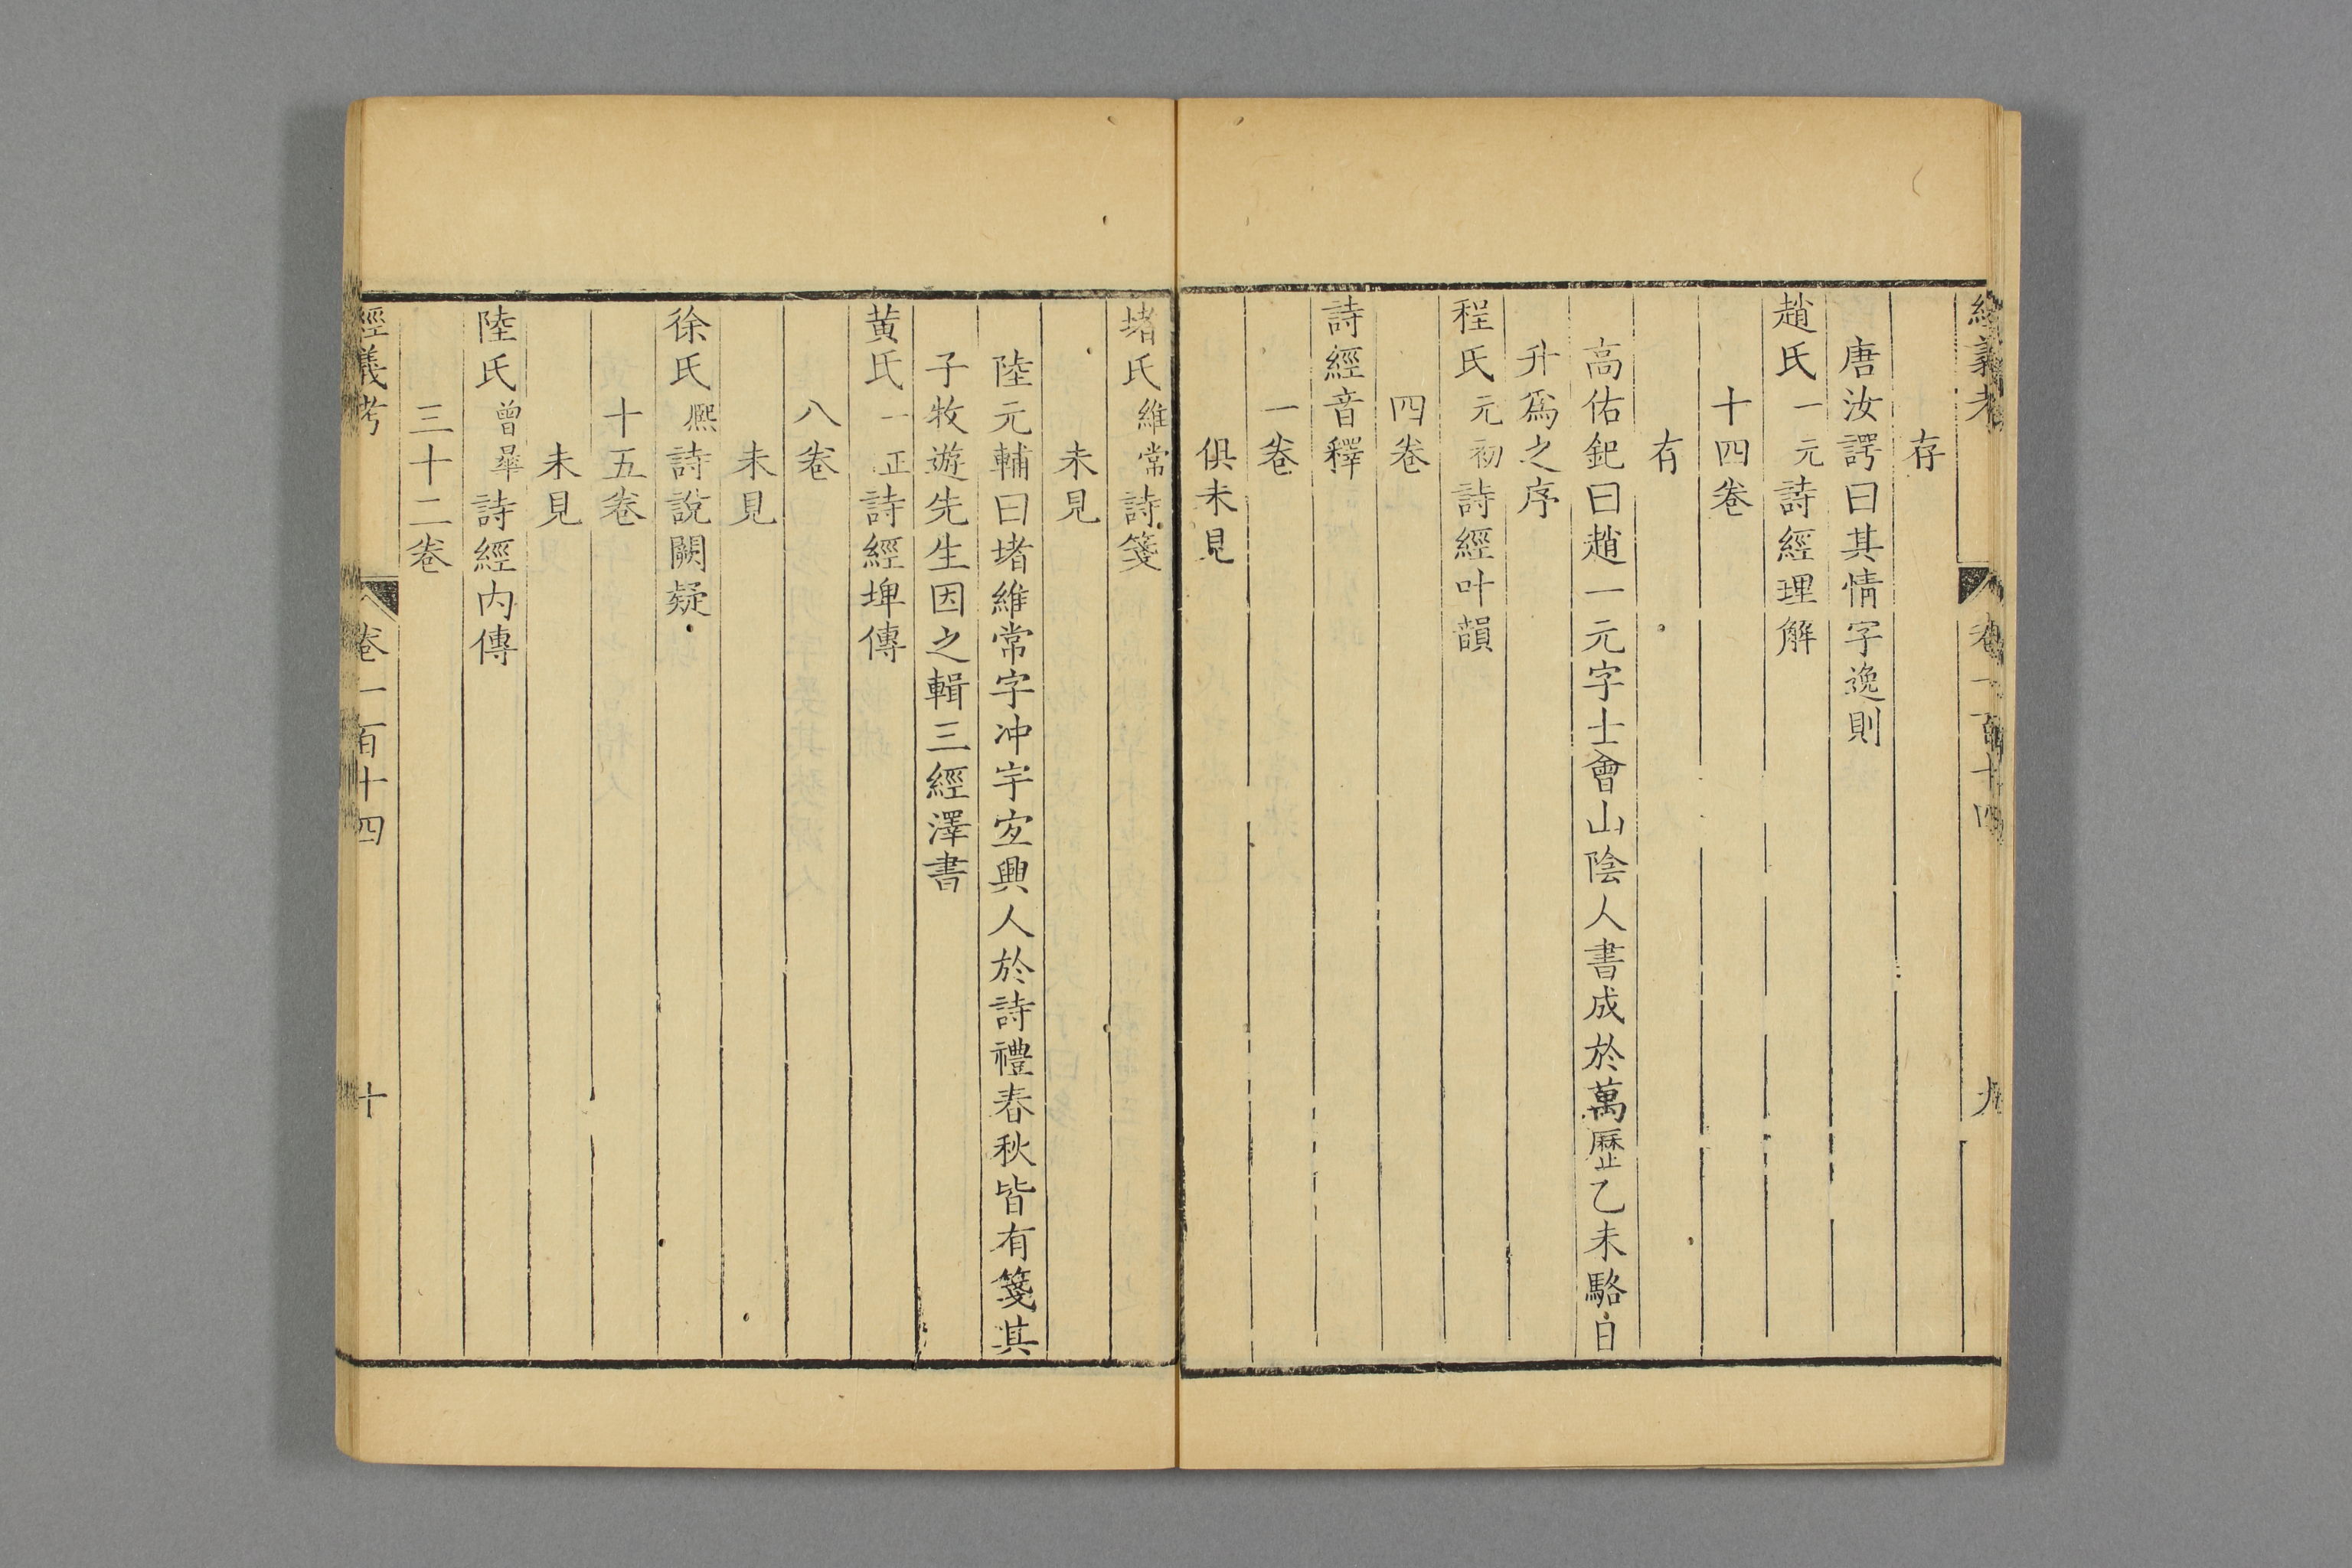 經義考 卷一百十四 九
存
唐汝諤曰其情字逸則
趙氏一元詩經理解
十四卷
存
高佑釲曰趙一元字士會山陰人書成於萬歷乙未駱日
升為之序
程氏元初詩經叶韻
四卷
詩經音釋
一卷
俱未見
堵氏維常詩箋
未見
陸元輔曰堵維常字冲宇宐興人於詩禮春秋皆有箋其
子牧遊先生因之輯三經澤書
黄氏一正詩經埤傳
八卷
未見
徐氏熙詩說闕疑
十五卷
未見
陸氏曾曅詩經内傳
三十二卷
經義考 卷一百十四 十